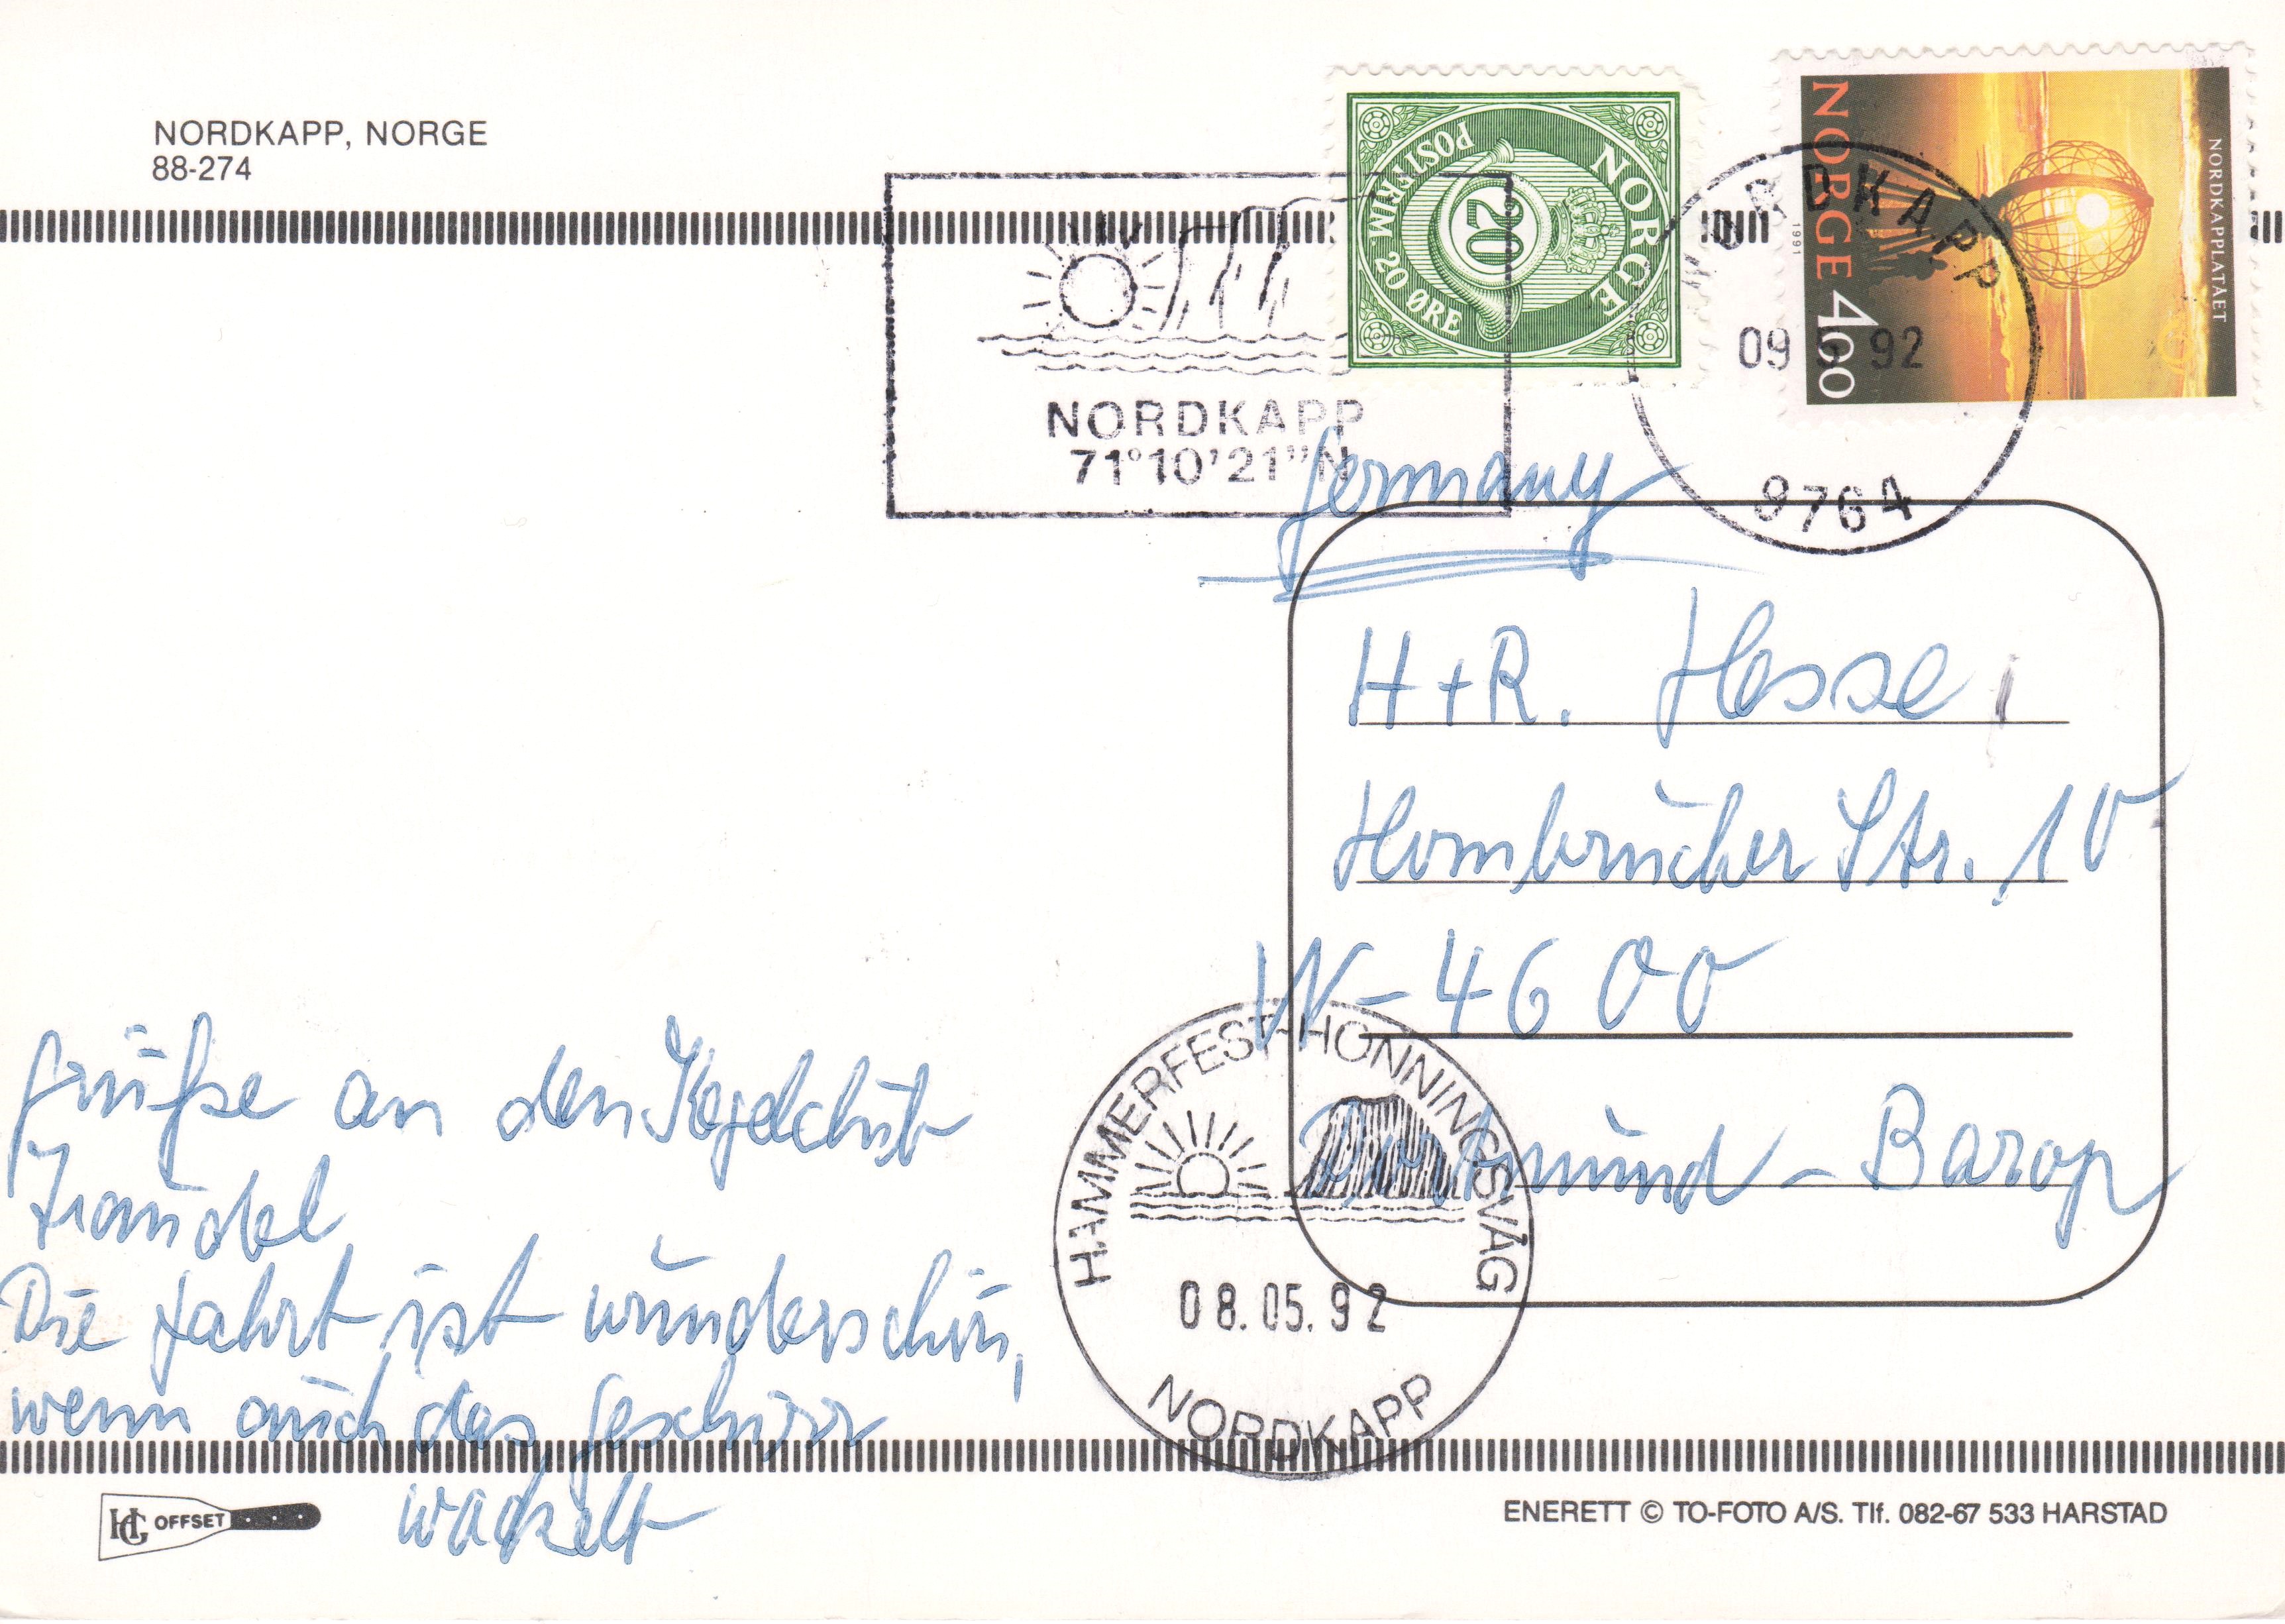 NORDKAPP, NORGE
88-274
NORGE
20
POSTFRIM. 20 ØRE
NORGE 4,00
1991
NORDKAPPLATÅET
NORDKAPP
71°10'21"N
NORDKAPP
09 5 92
9764
Germany
H+R. Hesse
Hombrücher Str. 10
W-4600
Dortmund-Barop
Grüße an den Kegelclub
Die Fahrt ist wunderschön,
wenn auch das Geschirr
wackelt
HAMMERFEST-HONNINGSVÅG
08.05.92
NORDKAPP
HG OFFSET
ENERETT © TO-FOTO A/S. Tlf. 082-67 533 HARSTAD